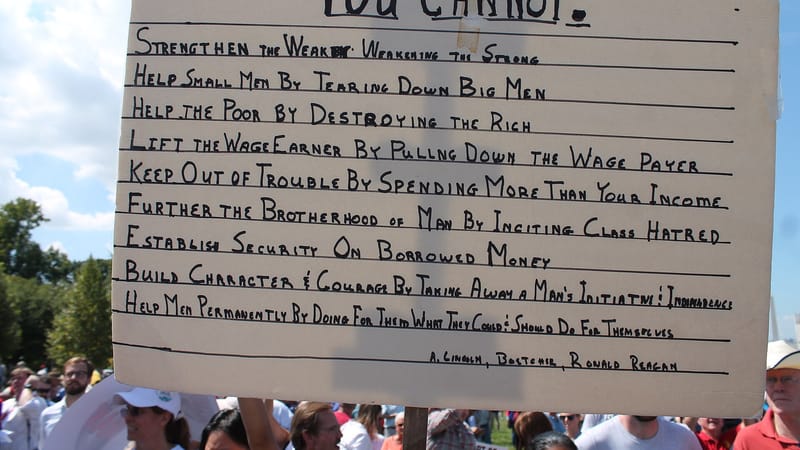 YOU CANNOT.
STRENGTHEN THE WEAK BY WEAKENING THE STRONG
HELP SMALL MEN BY TEARING DOWN BIG MEN
HELP THE POOR BY DESTROYING THE RICH
LIFT THE WAGE EARNER BY PULLNG DOWN THE WAGE PAYER
KEEP OUT OF TROUBLE BY SPENDING MORE THAN YOUR INCOME
FURTHER THE BROTHERHOOD OF MAN BY INCITING CLASS HATRED
ESTABLISH SECURITY ON BORROWED MONEY
BUILD CHARACTER & COURAGE BY TAKING AWAY A MAN'S INITIATIVE & INDEPENDENCE
HELP MEN PERMANENTLY BY DOING FOR THEM WHAT THEY COULD & SHOULD DO FOR THEMSELVES
A. LINCOLN, BOETCHER, RONALD REAGAN